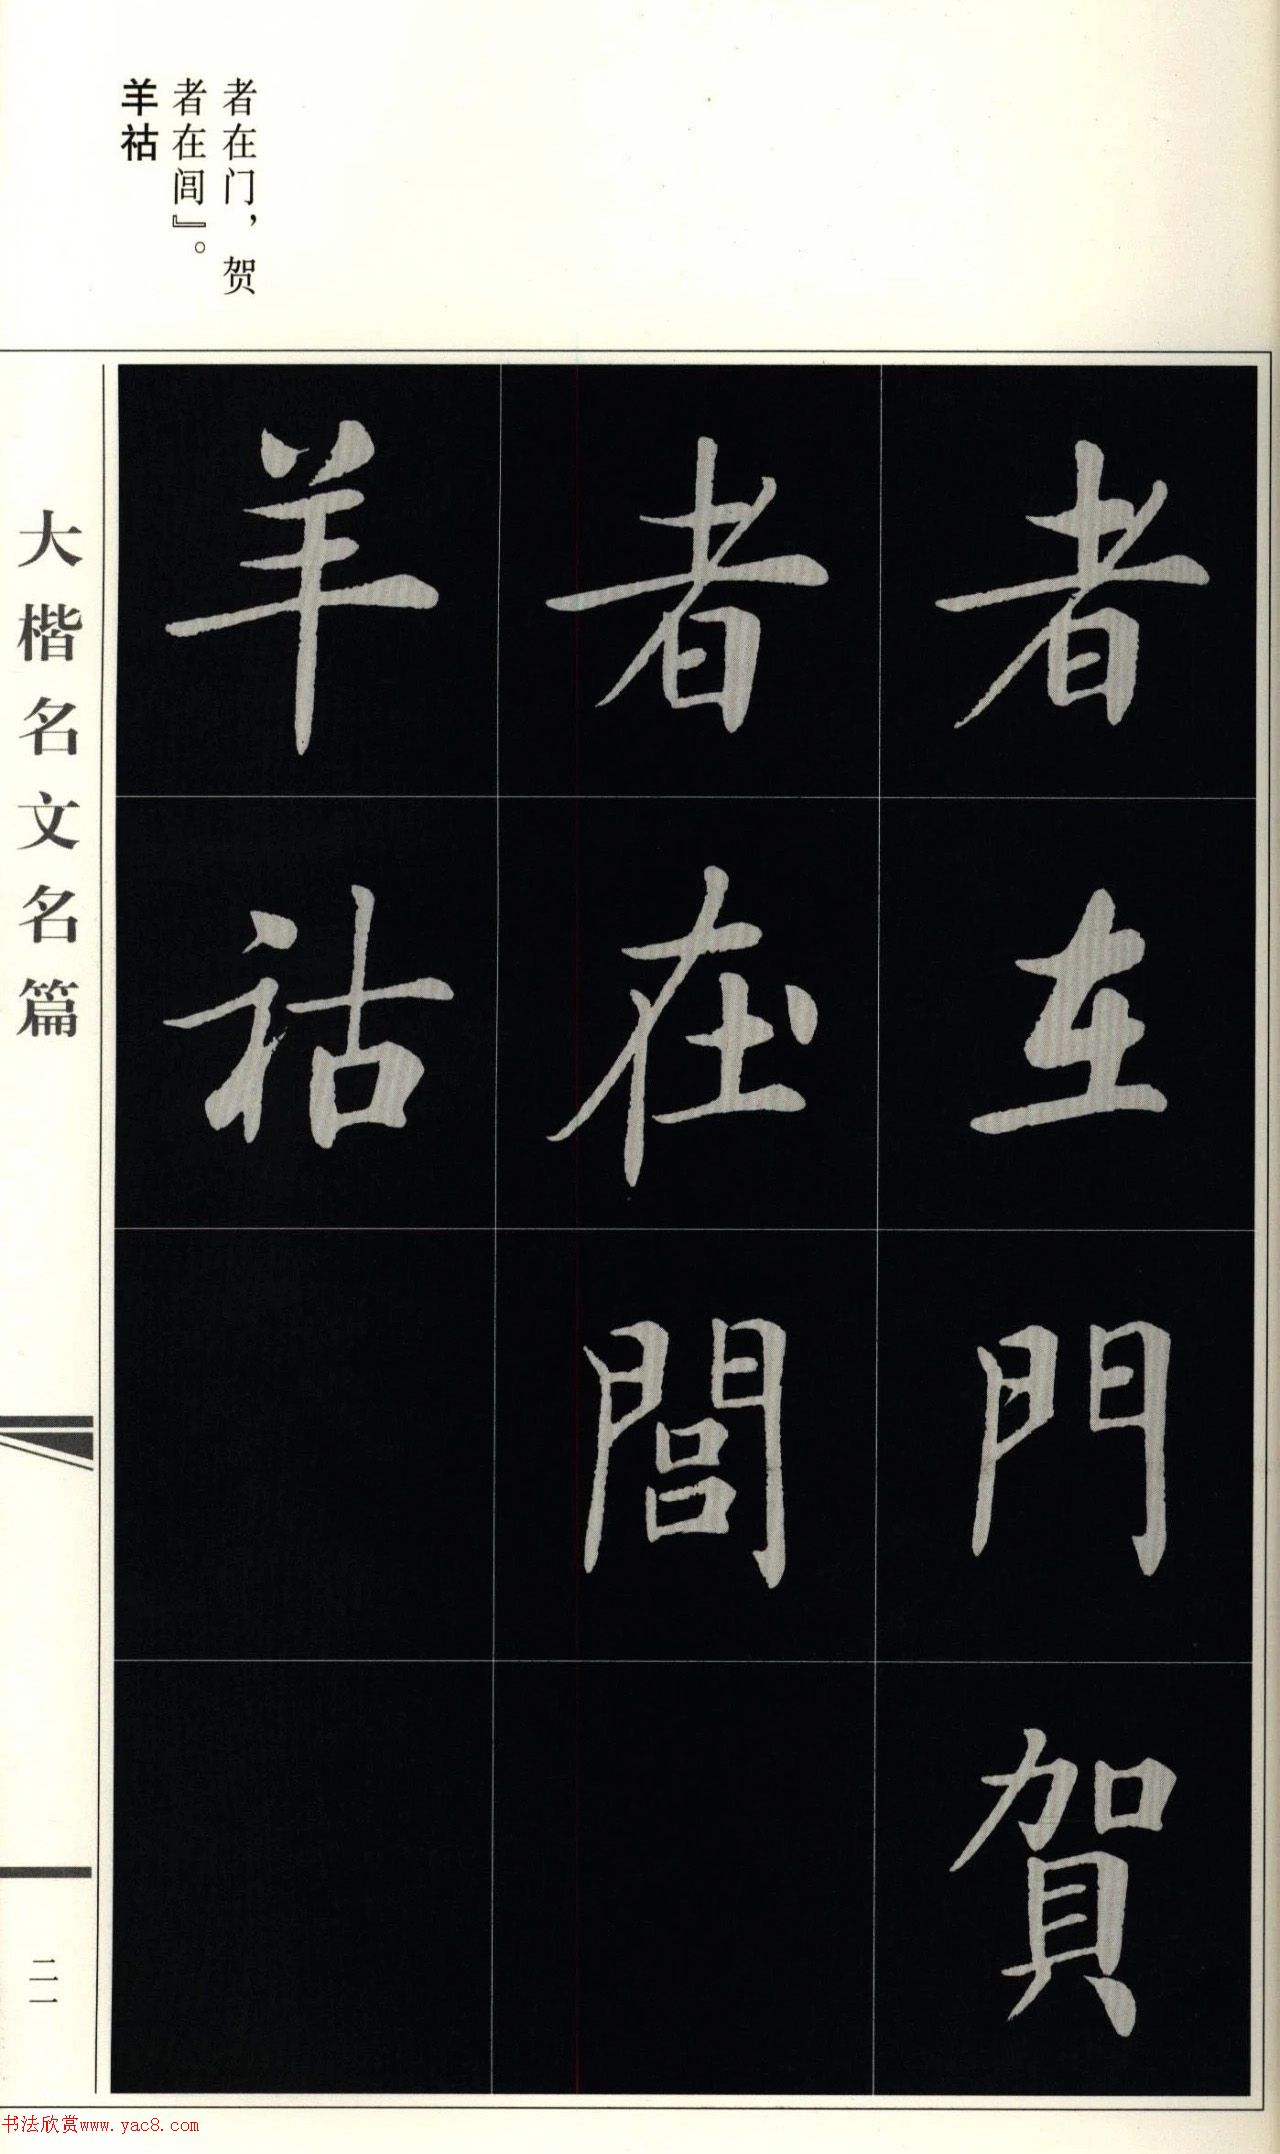 者在门，贺
者在闾』。
羊祜
者在門賀
者在閭
羊祜
大楷名文名篇
二一
书法欣赏www.yac8.com